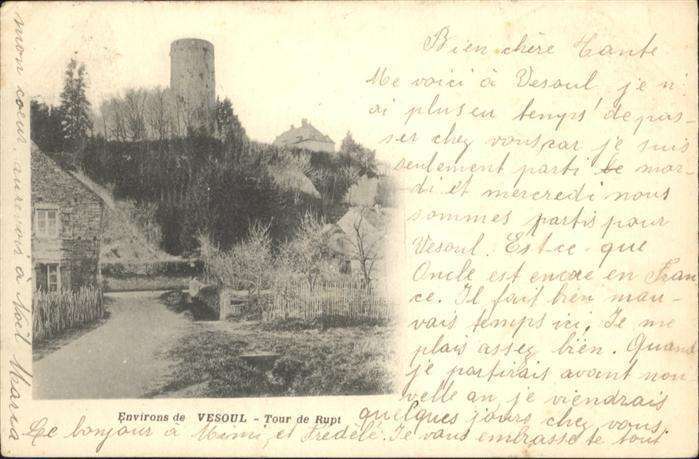 Bien chère Tante
Me voici à Vesoul je n'
ai plus eu temps de pas-
ser chez vous car je suis
seulement parti le mar-
di et mercredi nous
sommes partis pour
Vesoul. Est-ce que
Oncle est encore en Fran
ce. Il fait bien mau-
vais temps ici. Je me
plais assez bien. Quand
je partirais avant nou
velle an je viendrais
quelques jours chez vous.
Le bonjour à Mimi, et Frédélé. Je vous embrasse te tout
mon coeur aurevois à Noël Maria
Environs de VESOUL - Tour de Rupt